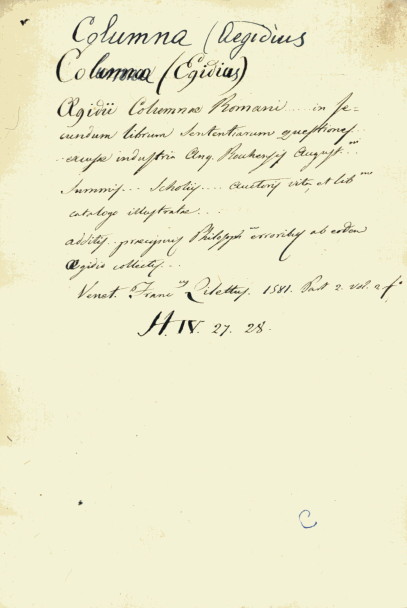 Columna (Aegidius
Columna (Egidius)
Ægidii Columnae Romani .... in se-
cundum librum sententiarum quaestiones
excusae industria Ang. Rockensis August...
Summis... Scholiis.... auctoris vita, et lib
catalogo illustratae...
additis praecipuis Philosoph erroribus ab eodem
Ægidio collectis...
Venet. Franc Ziletus. 1581. Part 2. vol. 2 f°
H. IV. 27. 28.
C